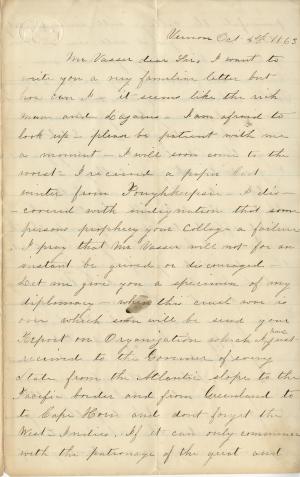 Vernon Oct 5th 1863
Mr Vasser dear Sir, I want to
write you a very familiar letter but
how can I - it seems like the rich
man and Lazarus - I am afraid to
look up - please be patient with me
a moment - I will soon come to the
worst - I received a paper last
winter from Poughkeepsie - I dis-
-covered with indignation that some
persons prophecy your College a failure
I pray that Mr Vasser will not for an
instant be grieved or discouraged -
Let me give you a specimen of my
diplomacy - when this cruel war is
over which soon will be send your
Report on Organization which I have just
received to the Governor of every
State from the Atlantic slope to the
Pacific border and from Greenland to
to Cape Horn and dont forget the
West-Indies. If it can only commence
with the patronage of the great and